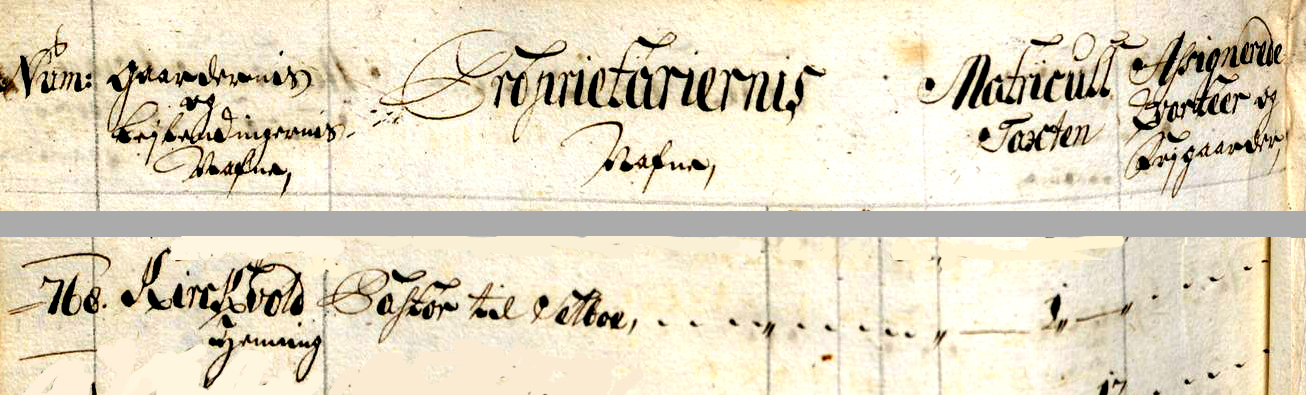 Num: Gaardernis og Lejlendingernis Nafne,
Proprietariernis Nafne,
Matricull Taxten
Assignerede Qvarteer og Frjgaarder,
768. Kirckvold Henning
Pastor til Veltoe, 1
17